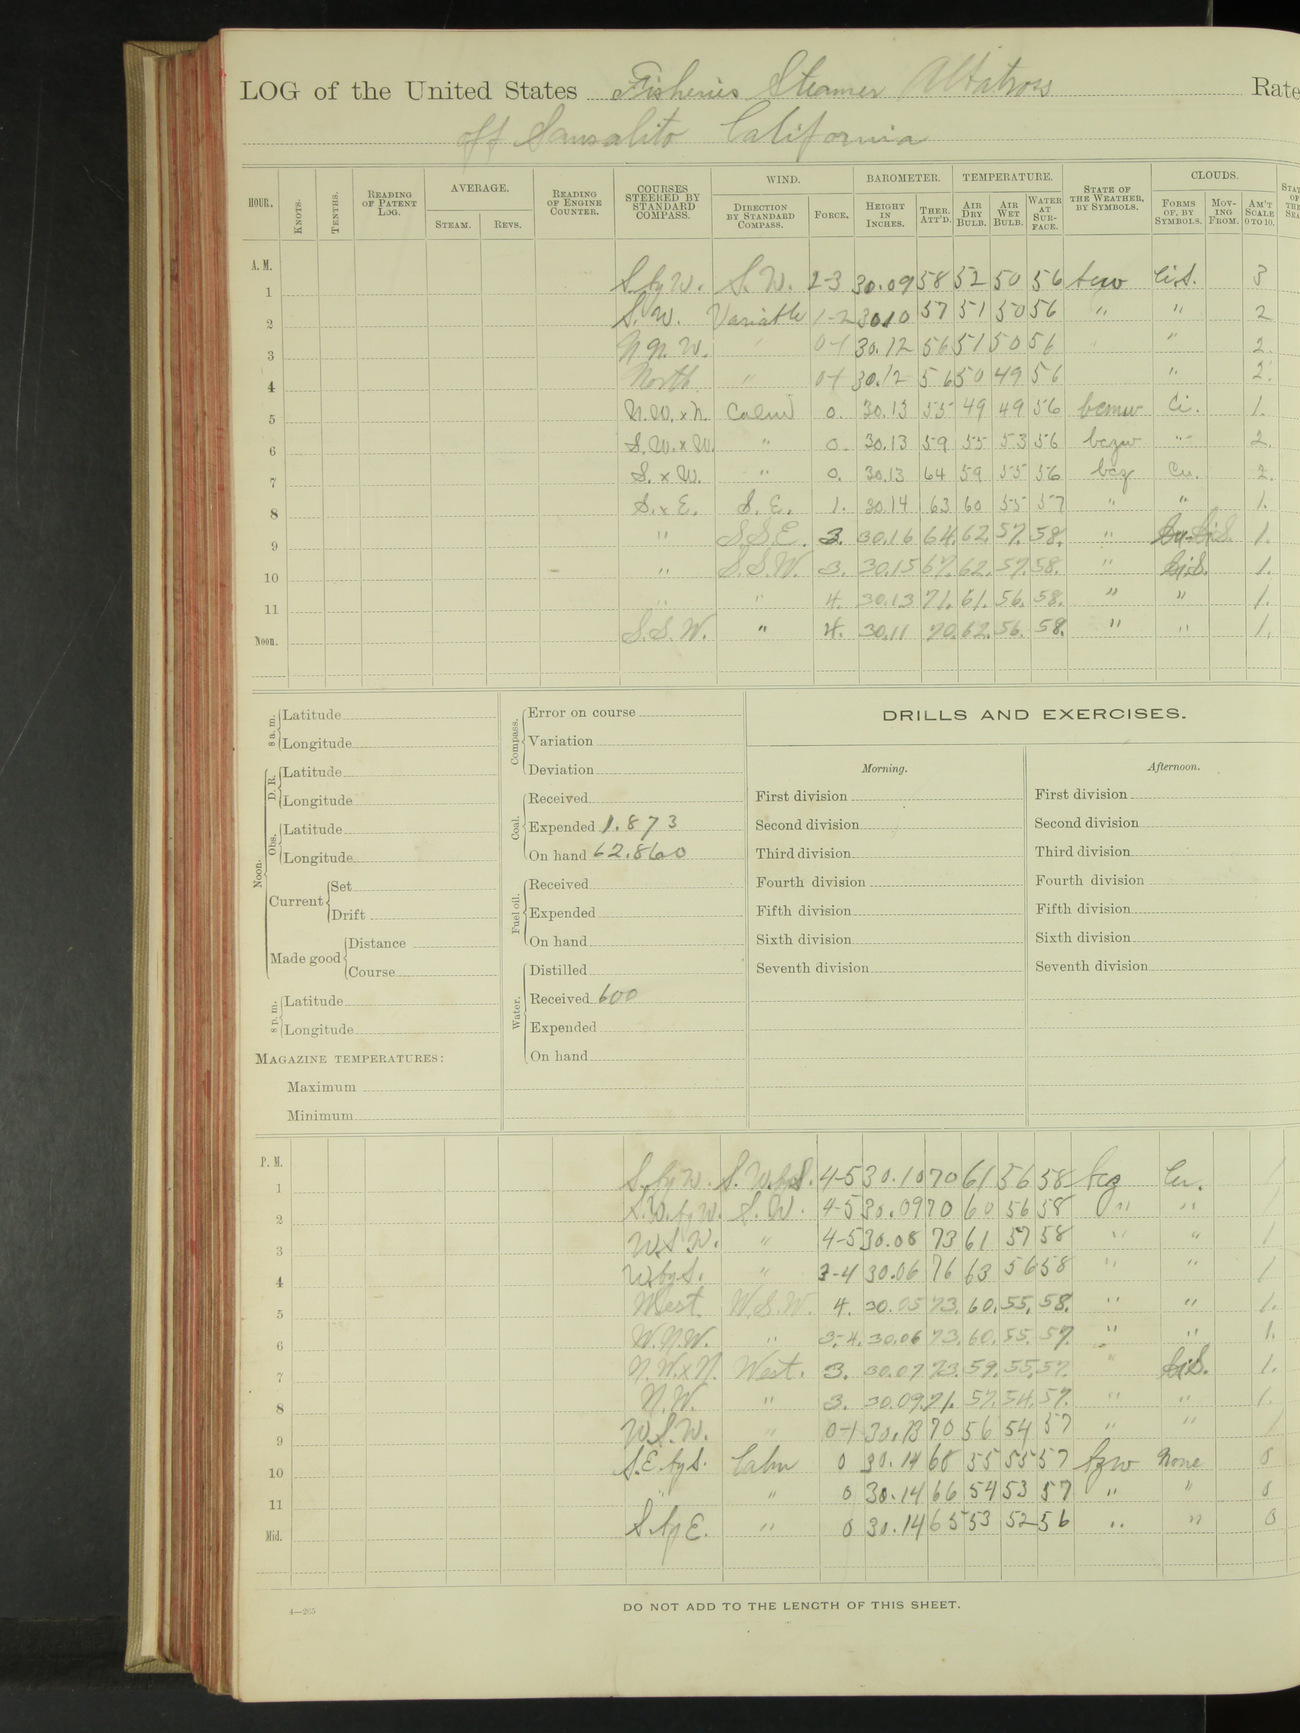 LOG of the United States Fisheries Steamer Albatross Rate
off Sausalito California
HOUR. KNOTS. TENTHS. READING OF PATENT LOG. AVERAGE. STEAM. REVS. READING OF ENGINE COUNTER. COURSES STEERED BY STANDARD COMPASS. WIND. DIRECTION BY STANDARD COMPASS. FORCE. BAROMETER. HEIGHT IN INCHES. THER. ATT'D. TEMPERATURE. AIR DRY BULB. AIR WET BULB. WATER AT SURFACE. STATE OF THE WEATHER, BY SYMBOLS. CLOUDS. FORMS OF, BY SYMBOLS. MOVING FROM. AM'T SCALE 0 TO 10.
A. M.
1 S. by W. S. W. 2-3 30.09 58 52 50 56 bcw Ci.S. 3
2 S. W. Variable 1-2 30.10 57 51 50 56 " " 2
3 N. N. W. " 0-1 30.12 56 51 50 56 " " 2.
4 North " 0-1 30.12 56 50 49 56 " 2.
5 N. W. x N. Calm 0. 30.13 55 49 49 56 bcmw Ci. 1.
6 S. W. x W. " 0. 30.13 59 55 53 56 bczw " 2.
7 S. x W. " 0. 30.13 64 59 55 56 bcz Cu. 2.
8 S. x E. S. E. 1. 30.14 63 60 55 57 " " 1.
9 " S.S.E. 3. 30.16 64. 62. 57. 58. " Ci.S. 1.
10 " S.S.W. 3. 30.15 67. 62. 57. 58. " Ci.S. 1.
11 " " 4. 30.13 71. 61. 56. 58. " " 1.
Noon. S. S. W. " 4. 30.11 70. 62. 56. 58. " " 1.
8 a. m. Latitude
Longitude
Noon. D. R. Latitude
Longitude
Obs. Latitude
Longitude
Current Set
Drift
Made good Distance
Course
8 p. m. Latitude
Longitude
MAGAZINE TEMPERATURES:
Maximum
Minimum
Compass. Error on course
Variation
Deviation
Coal. Received
Expended 1.873
On hand 62.860
Fuel oil. Received
Expended
On hand
Water. Distilled
Received 600
Expended
On hand
DRILLS AND EXERCISES.
Morning.
First division
Second division
Third division
Fourth division
Fifth division
Sixth division
Seventh division
Afternoon.
First division
Second division
Third division
Fourth division
Fifth division
Sixth division
Seventh division
P. M.
1 S. by W. S. W. by S. 4-5 30.10 70 61 56 58 bcz Cu. 1
2 S. W. by W. S. W. 4-5 30.09 70 60 56 58 " " 1
3 W. S. W. " 4-5 30.08 73 61 57 58 " " 1
4 W by S. " 3-4 30.06 76 63 56 58 " " 1
5 West W. S. W. 4. 30.05 73. 60. 55. 58. " " 1.
6 W. N. W. " 3-4. 30.06 73. 60. 55. 57. " " 1.
7 N. W. x N. West. 3. 30.07 73. 59. 55. 57. " Ci.S. 1.
8 N. W. " 3. 30.09 71. 57. 54. 57. " " 1.
9 W. S. W. " 0-1 30.13 70 56 54 57 " " 1
10 S. E. by S. Calm 0 30.14 68 55 55 57 bzw None 0
11 " " 0 30.14 66 54 53 57 " " 0
Mid. S. by E. " 0 30.14 65 53 52 56 " " 0
4—265
DO NOT ADD TO THE LENGTH OF THIS SHEET.